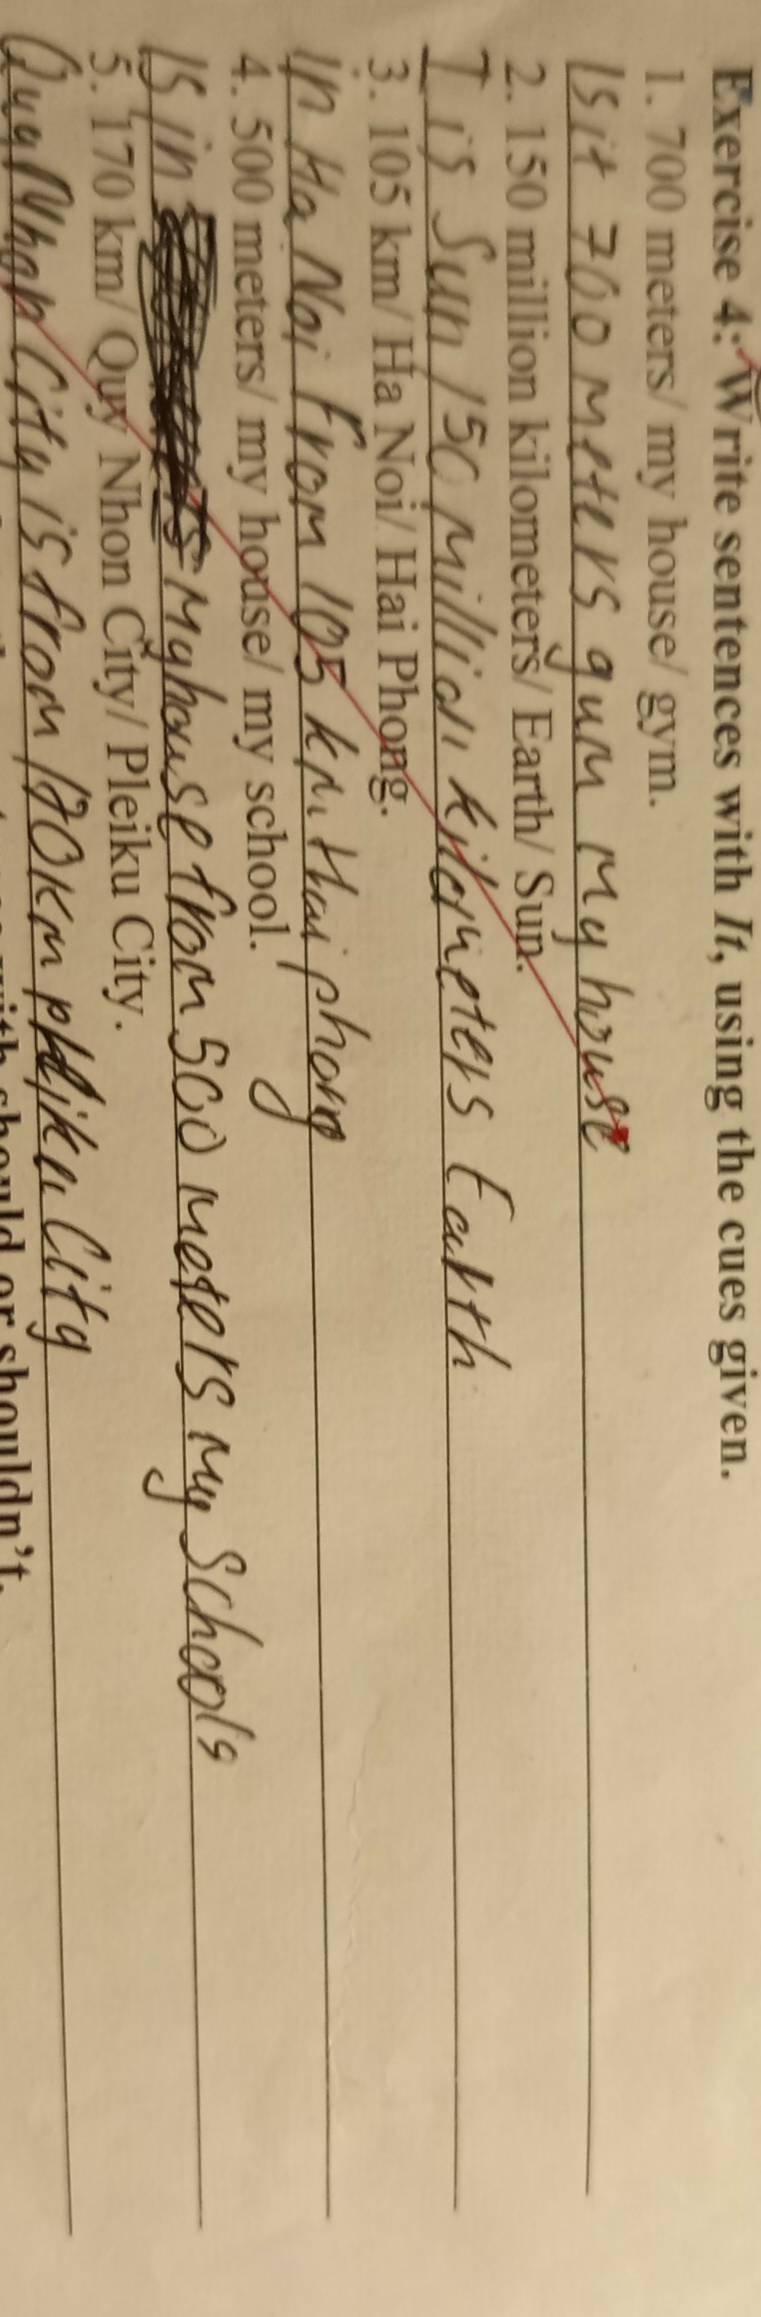 Exercise 4: Write sentences with It, using the cues given.
1. 700 meters/ my house/ gym.
Is it 700 meters gym my house
2. 150 million kilometers/ Earth/ Sun.
I is Sun 150 million kilometers Earth
3. 105 km/ Ha Noi/ Hai Phong.
in Ha Noi from 105 km Hai phong
4. 500 meters/ my house/ my school.
is in my house from 500 meters my Schools
5. 170 km/ Quy Nhon City/ Pleiku City.
Quy Nhon City is from 170 km City
should or shouldn't.